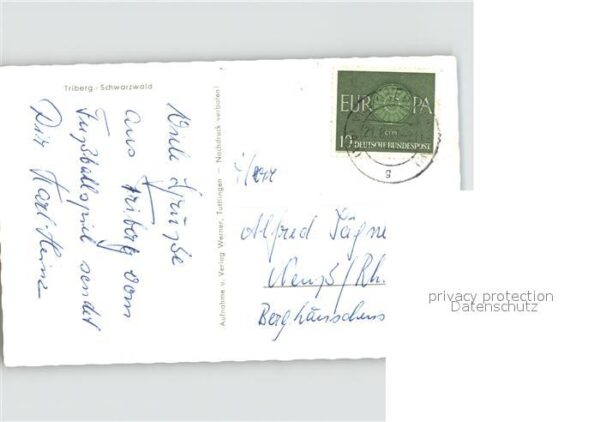 Triberg - Schwarzwald
Viele Grüße
aus Triberg vom
Fußballspiel sendet
Dir Karl-Heinz
Aufnahme u. Verlag Werner, Tuttlingen — Nachdruck verboten!
EUROPA
CEPT
10 DEUTSCHE BUNDESPOST
g
Herr
Alfred
Neuß/Rh.
privacy protection
Datenschutz